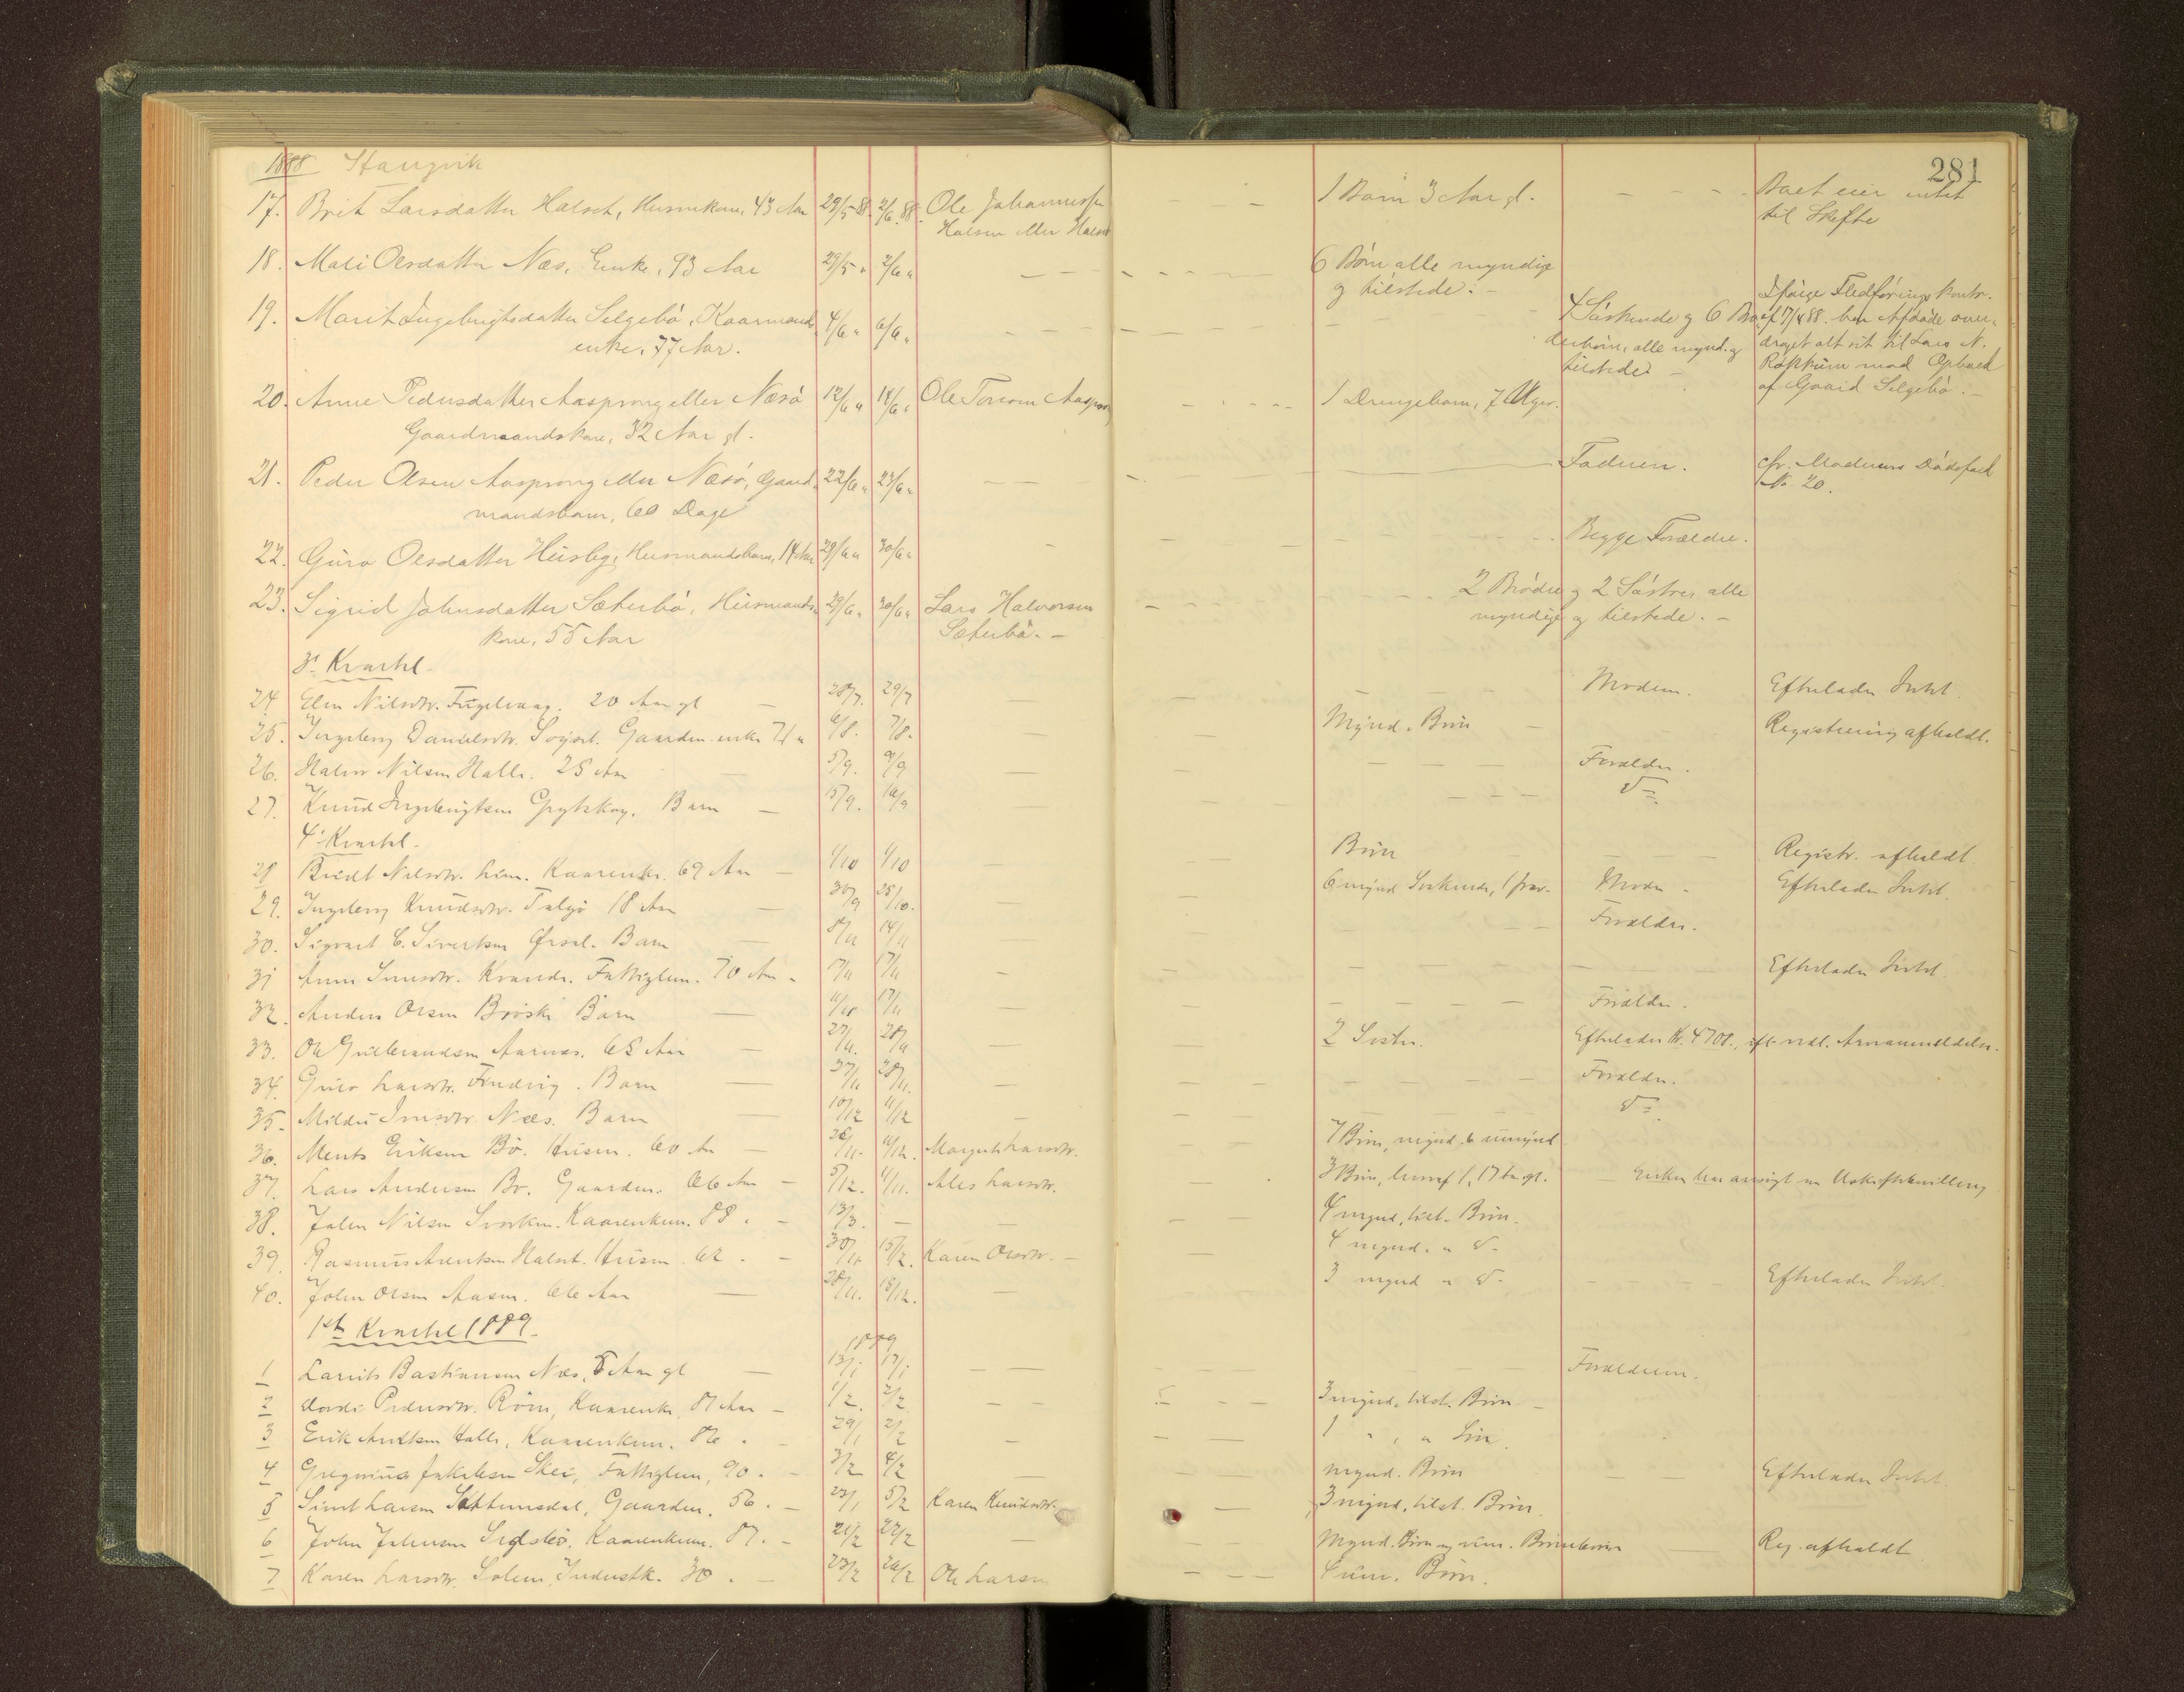 281
1888 Stangvik
17. Brit Larsdatter Halset, Husmkone, 43 Aar 29/5 88. 2/6 88. Ole Johannessen — — — 1 Barn 3 Aar gl. — — — Boet eier intet
Halsen eller Halset til Skifte
18. Mali Olsdatter Næs, Enke, 93 Aar 29/5 " 2/6 " — — — 6 Børn alle myndige
og tilstede. —
19. Marit Ingebrigtsdatter Selgebø, Kaarmands- 4/6 " 6/6 " — — — 4 Søskende og 6 Bro- Ifølge Fledførings kontr.
enke, 77 Aar. derbørn, alle mynd. og af 17/4 88. har Afdøde over-
tilstede — draget alt sit til Lars N.
Røkkum mod Ophold
af Gaard Selgebø. —
20. Anne Pedersdatter Aasprong eller Næsø 12/6 " 14/6 " Ole Aasprong — — — 1 Drengebarn, 7 Uger.
Gaardmandskone, 32 Aar gl.
21. Peder Olsen Aasprong eller Næsø, Gaard- 22/6 " 23/6 " — — Faderen. cfr. Moderens Dødsfald
mandsbarn, 60 Dage No 20.
22. Guro Olsdatter Husby, Husmandsbarn, 14 Aar 29/6 " 30/6 " — Begge Forældre.
23. Sigrid Johnsdatter Sæterbø, Husmands- 29/6 " 30/6 " Lars Halvorsen — 2 Brødre og 2 Søstre, alle
kone, 55 Aar Sæterbø. — myndige og tilstede. —
3die Kvartal.
24 Elen Nilsdtr. Fuglevaag. 20 Aar gl — 28/7. 29/7 — Modren. Efterlader Intet.
25. Ingeborg Danielsdtr. Gaardm. enke 71 " 6/8. 7/8. Mynd. Børn — Registrering afholdt.
26. Halvor Nilsen Halle. 25 Aar — 5/9. 9/9 — Forældre.
27. Knud Ingebrigtsen Grytskog. Barn — 15/9. 16/9 — Do
4de Kvartal.
28 Nilsdtr. Kaarenke. 69 Aar — 1/10 4/10 — Børn — Registr. afholdt
29. Ingeborg Knudsdtr. Talgø 18 Aar — 30/9 25/10. 6 mynd Søskende, Moder — Efterlader Intet.
30. Sigvart C. Sivertsen Ørsal. Barn — 8/11 14/11 — Forældre.
31 Anne Kvande. Fattiglem. 70 Aar — 17/11 — Efterlader Intet.
32. Anders Olsen Brøske Barn — 17/11 — Forældre.
33. Ole Gulbrandsen Aarnes. 65 Aar — 27/11. 28/11 — 2 Søstre. Efterlader Kr. 4708.
34. Guro Larsdtr. Barn — 27/11 28/11. — Forældre.
35. Næs. Barn — 10/12 11/12 — Do
36. Ments Eriksen Bø. Husm. 60 Aar — 26/11. 4/12. Larsdtr. 7 Børn, mynd. 6 umynd
37. Lars Andersen Bø. Gaardm. 66 Aar — 5/12. Ales Larsdtr. 3 Børn, hvoraf 1, 17 Aar gl. — Enken har ansøgt om Uskiftebevilling
38. John Nilsen Kaarenkem. 88. — 13/3. — 4 mynd, tilst. Børn.
39. Rasmus Halset. Husm. 62. — 30/11 15/12. Karen Olsdtr. — 4 mynd. " Do —
40. John Olsen Aasen. 66 Aar — 28/11. 18/12. — 3 mynd " Do — Efterlader Intet.
1ste Kvartal 1889.
1889
1 Laurits Bastiansen Næs, 5 Aar gl — 13/1 17/1 — Forældrene.
2 Pedersdtr. Røen, Kaarenke, 81 Aar — 1/2. 2/2 — 3 mynd. tilst. Børn —
3 Erik Halle, Kaarenkem. 86. 29/1 2/2 — 1 " , " Søn.
4 Gregorius Jakobsen Skei, Fattiglem, 90. — 3/2 4/2 — mynd. Børn — Efterlader Intet.
5 Sivert Larsen Settemsdal, Gaardm. 56. — 23/1 5/2 Karen Knudsdtr. — 3 mynd, tilst. Børn.
6 John Johnsen Kaarenkem. 87. — 21/2 22/2 — Mynd. Børn og um. Børnebørn — Reg. afholdt
7 Karen Larsdtr. Solem, 30. — 23/2 26/2 Ole Larsen — 4 um. Børn.